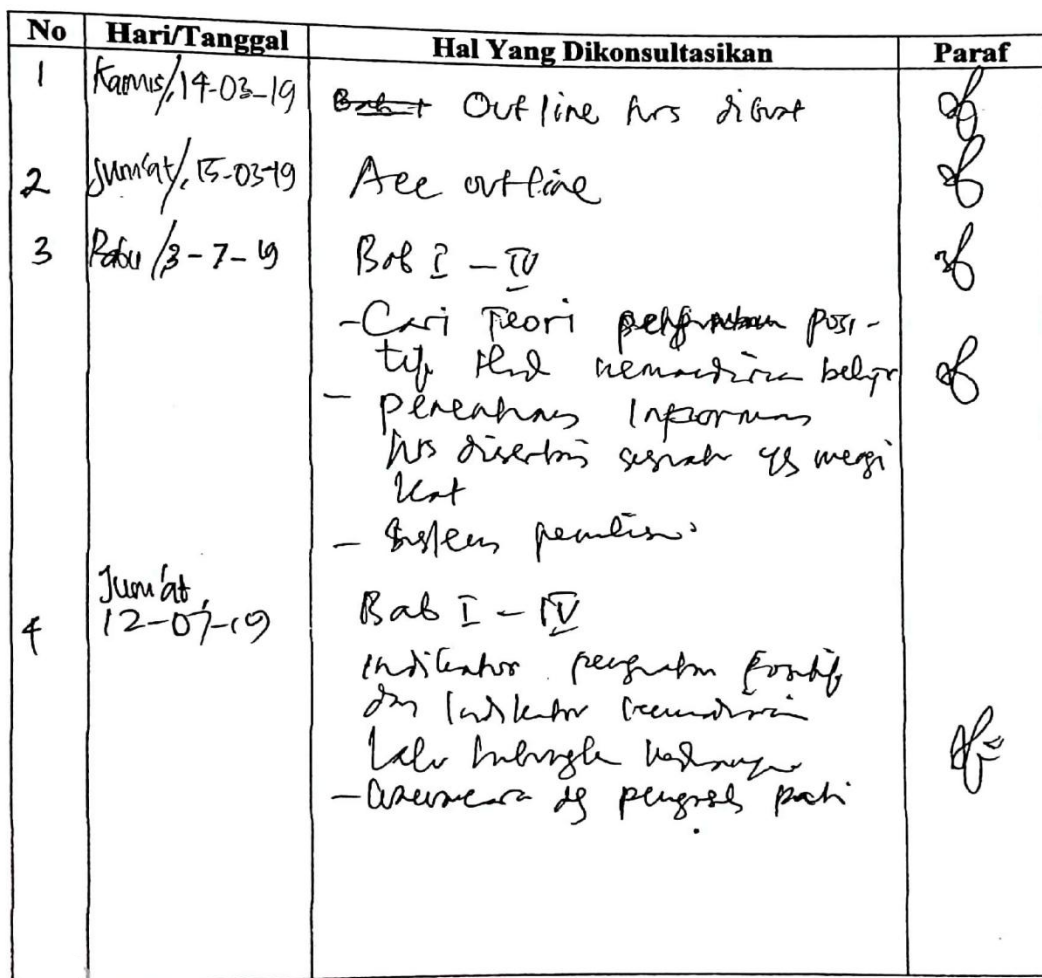 No Hari/Tanggal Hal Yang Dikonsultasikan Paraf
1 Kamis/,14-03-19 Outline hrs dibuat
2 Jum'at/, 15-03-19 Acc outline
3 Rabu /3-7-19 Bab I - IV
- Cari Teori posi-
tif thd kemandirian belajar
-
hrs disertai yg mengi
kat
- Sistem penulisan
4 Jum'at, 12-07-19 Bab I - IV
indikator penguatan positif
dan indikator kemandirian
lalu hubungkan keduanya
- wawancara dg